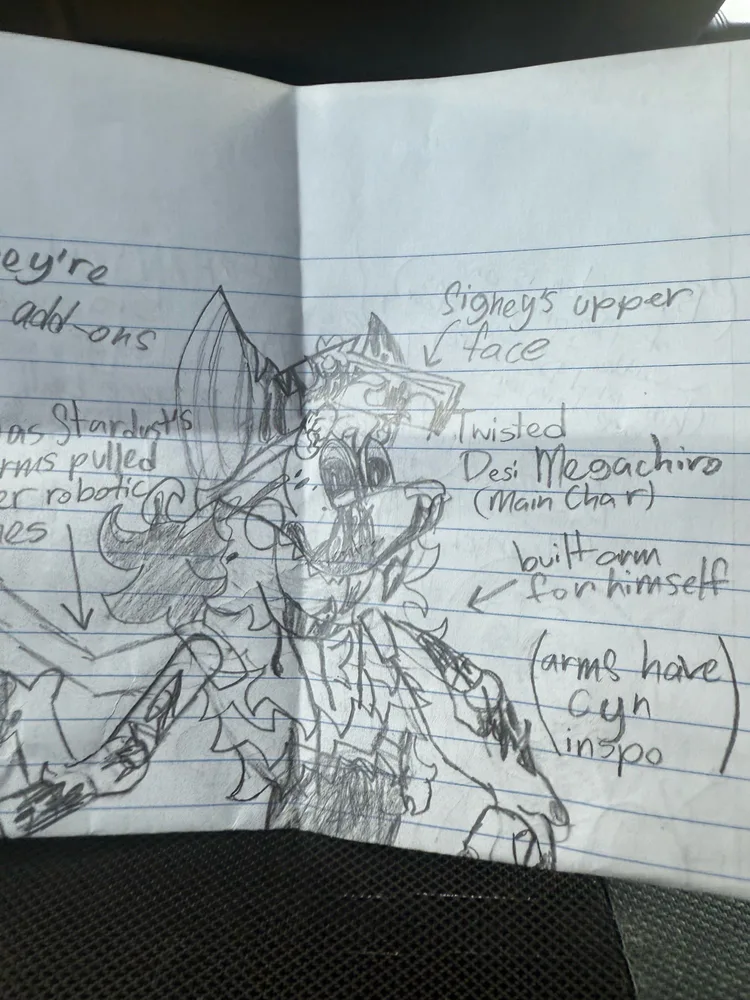 ey're
add-ons
as Stardust's
rms pulled
er robotic
nes
Sighey's upper
face
Twisted
Desi Megachiro
(Main Char)
built arm
for himself
(arms have
Cyn
inspo)